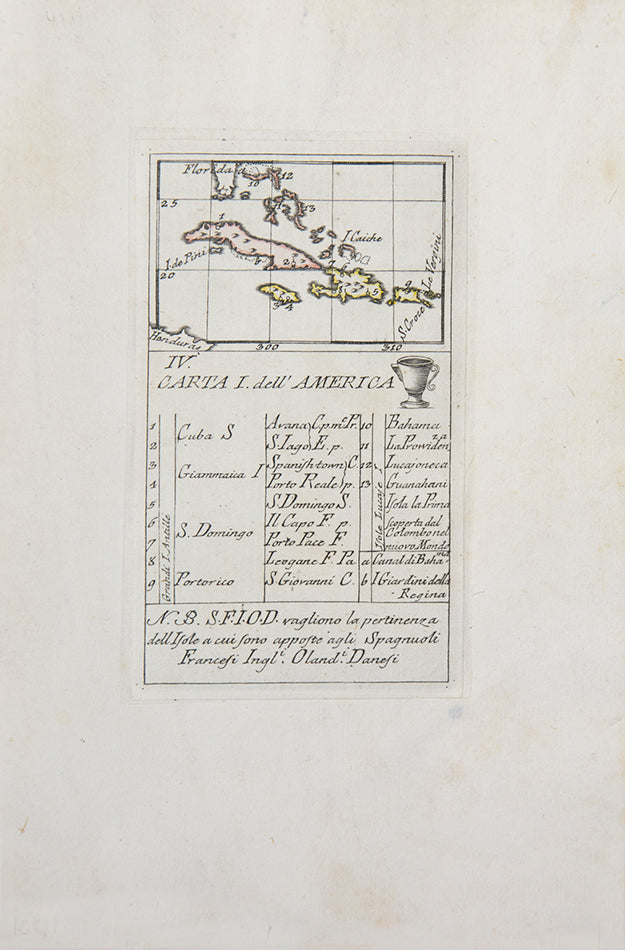 Florida
a
10
12
25
11
13
1
I. Caiche
I. de Pini
b
2
7
6
20
5
9
3
4
S. Croce
Le Vergini
Honduras
300
310
IV.
CARTA I. dell' AMERICA
1 Cuba S Avana Cp.mcPr. 10 Bahama
2 S. Iago E. p. 11 La Prowidenza
3 Giammaica I Spanishtown C. 12 Lucajoneca
4 Porto Reale p. 13 Guanahani
5 S. Domingo S. Isola la Prima
6 S. Domingo Il Capo F. p. scoperta dal
7 Porto Pace F. Colombo nel nuovo Mondo
8 Leogane F. Pa a Canal di Bahama
9 Portorico S. Giovanni C. b I Giardini della Regina
Grandi I. Antille
Isole Lucaje
N. B. S.F.I.O.D. vagliono la pertinenza
dell Isole a cui sono apposte agli Spagnuoli
Francesi Ingl.i Oland.i Danesi